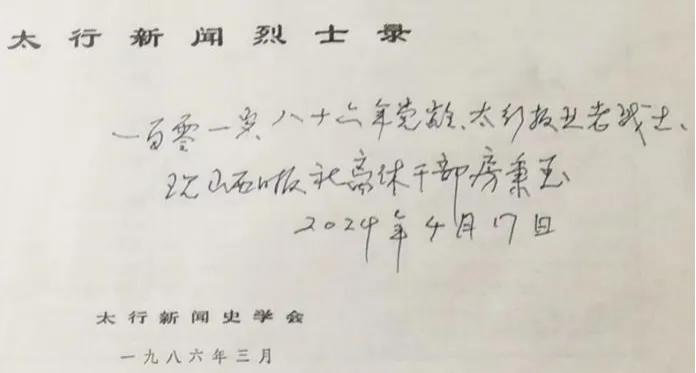 太行新闻烈士录
一百零一岁、八十六年党龄、太行报业老战士、
现山西日报社离休干部房秉玉
2024年4月17日
太行新闻史学会
一九八六年三月